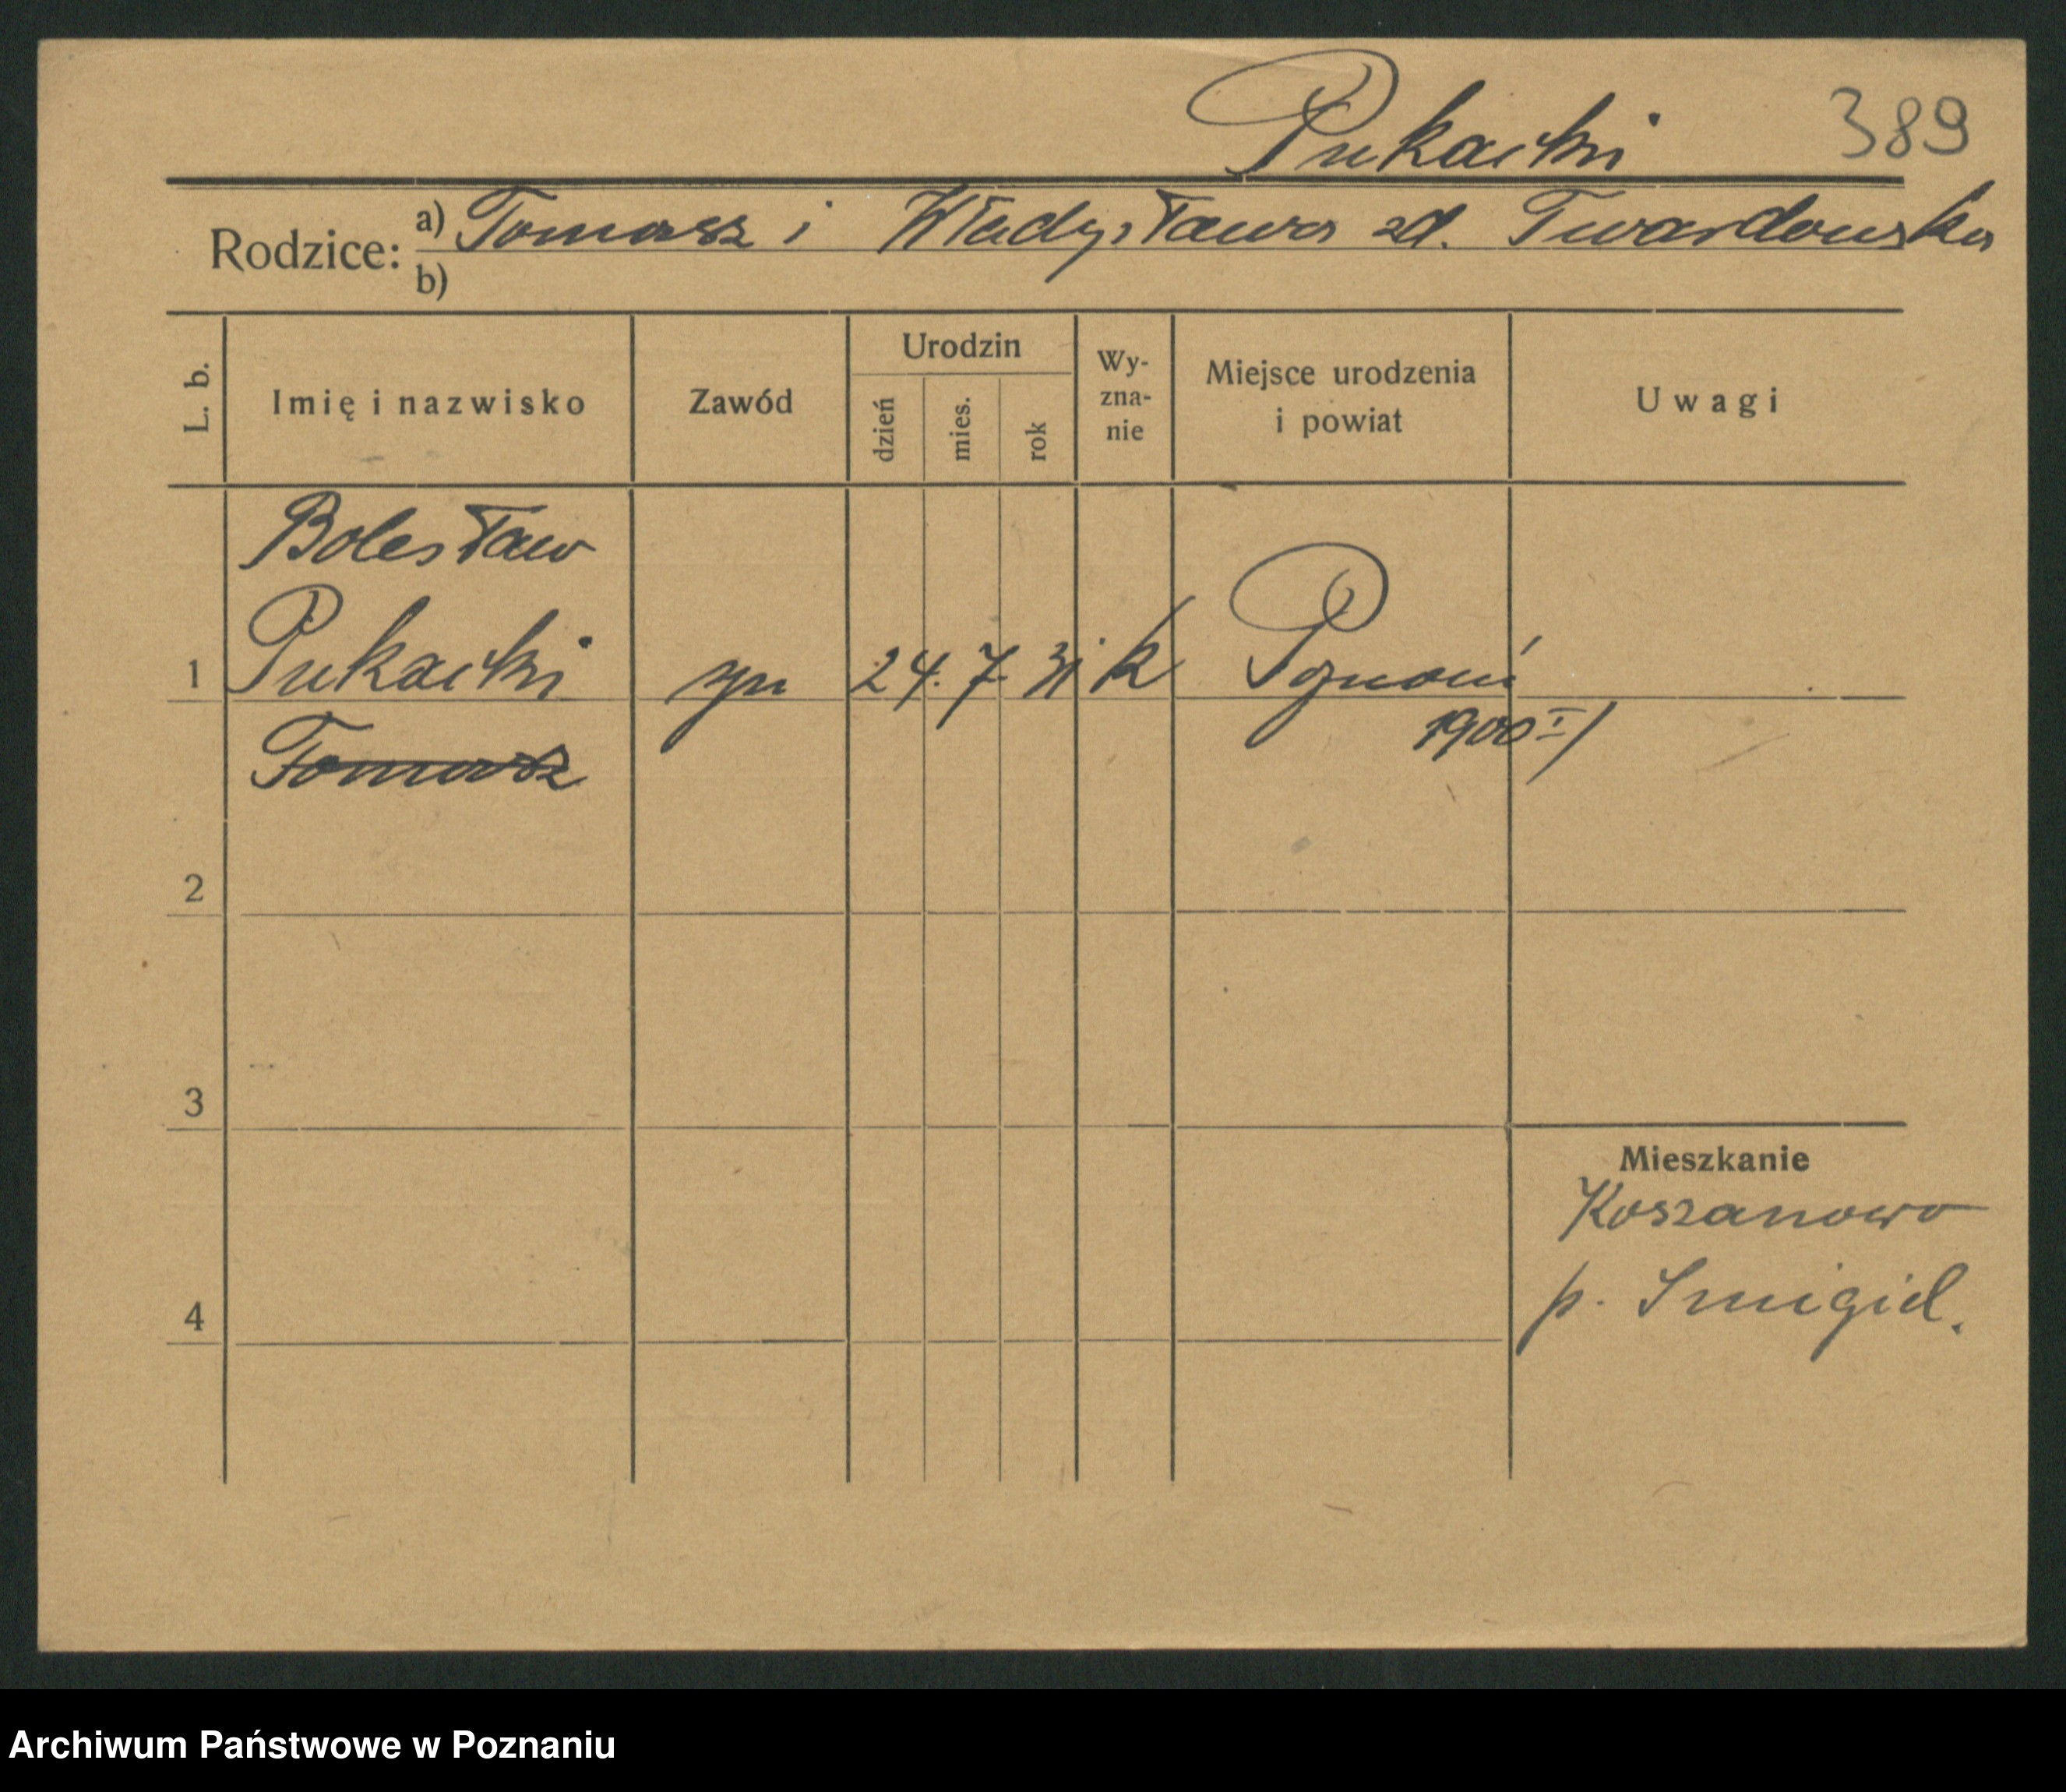 Pukacki 389
Rodzice: a) Tomasz i Władysława zd. Twardowska
b)
L. b. Imię i nazwisko Zawód Urodzin dzień mies. rok Wy-zna-nie Miejsce urodzenia i powiat Uwagi
Bolesław
1 Pukacki syn 24. 7. 31 k Poznań
Tomasz 1900 I/
2
3
Mieszkanie
Koszanowo
4 p. Smigiel.
Archiwum Państwowe w Poznaniu